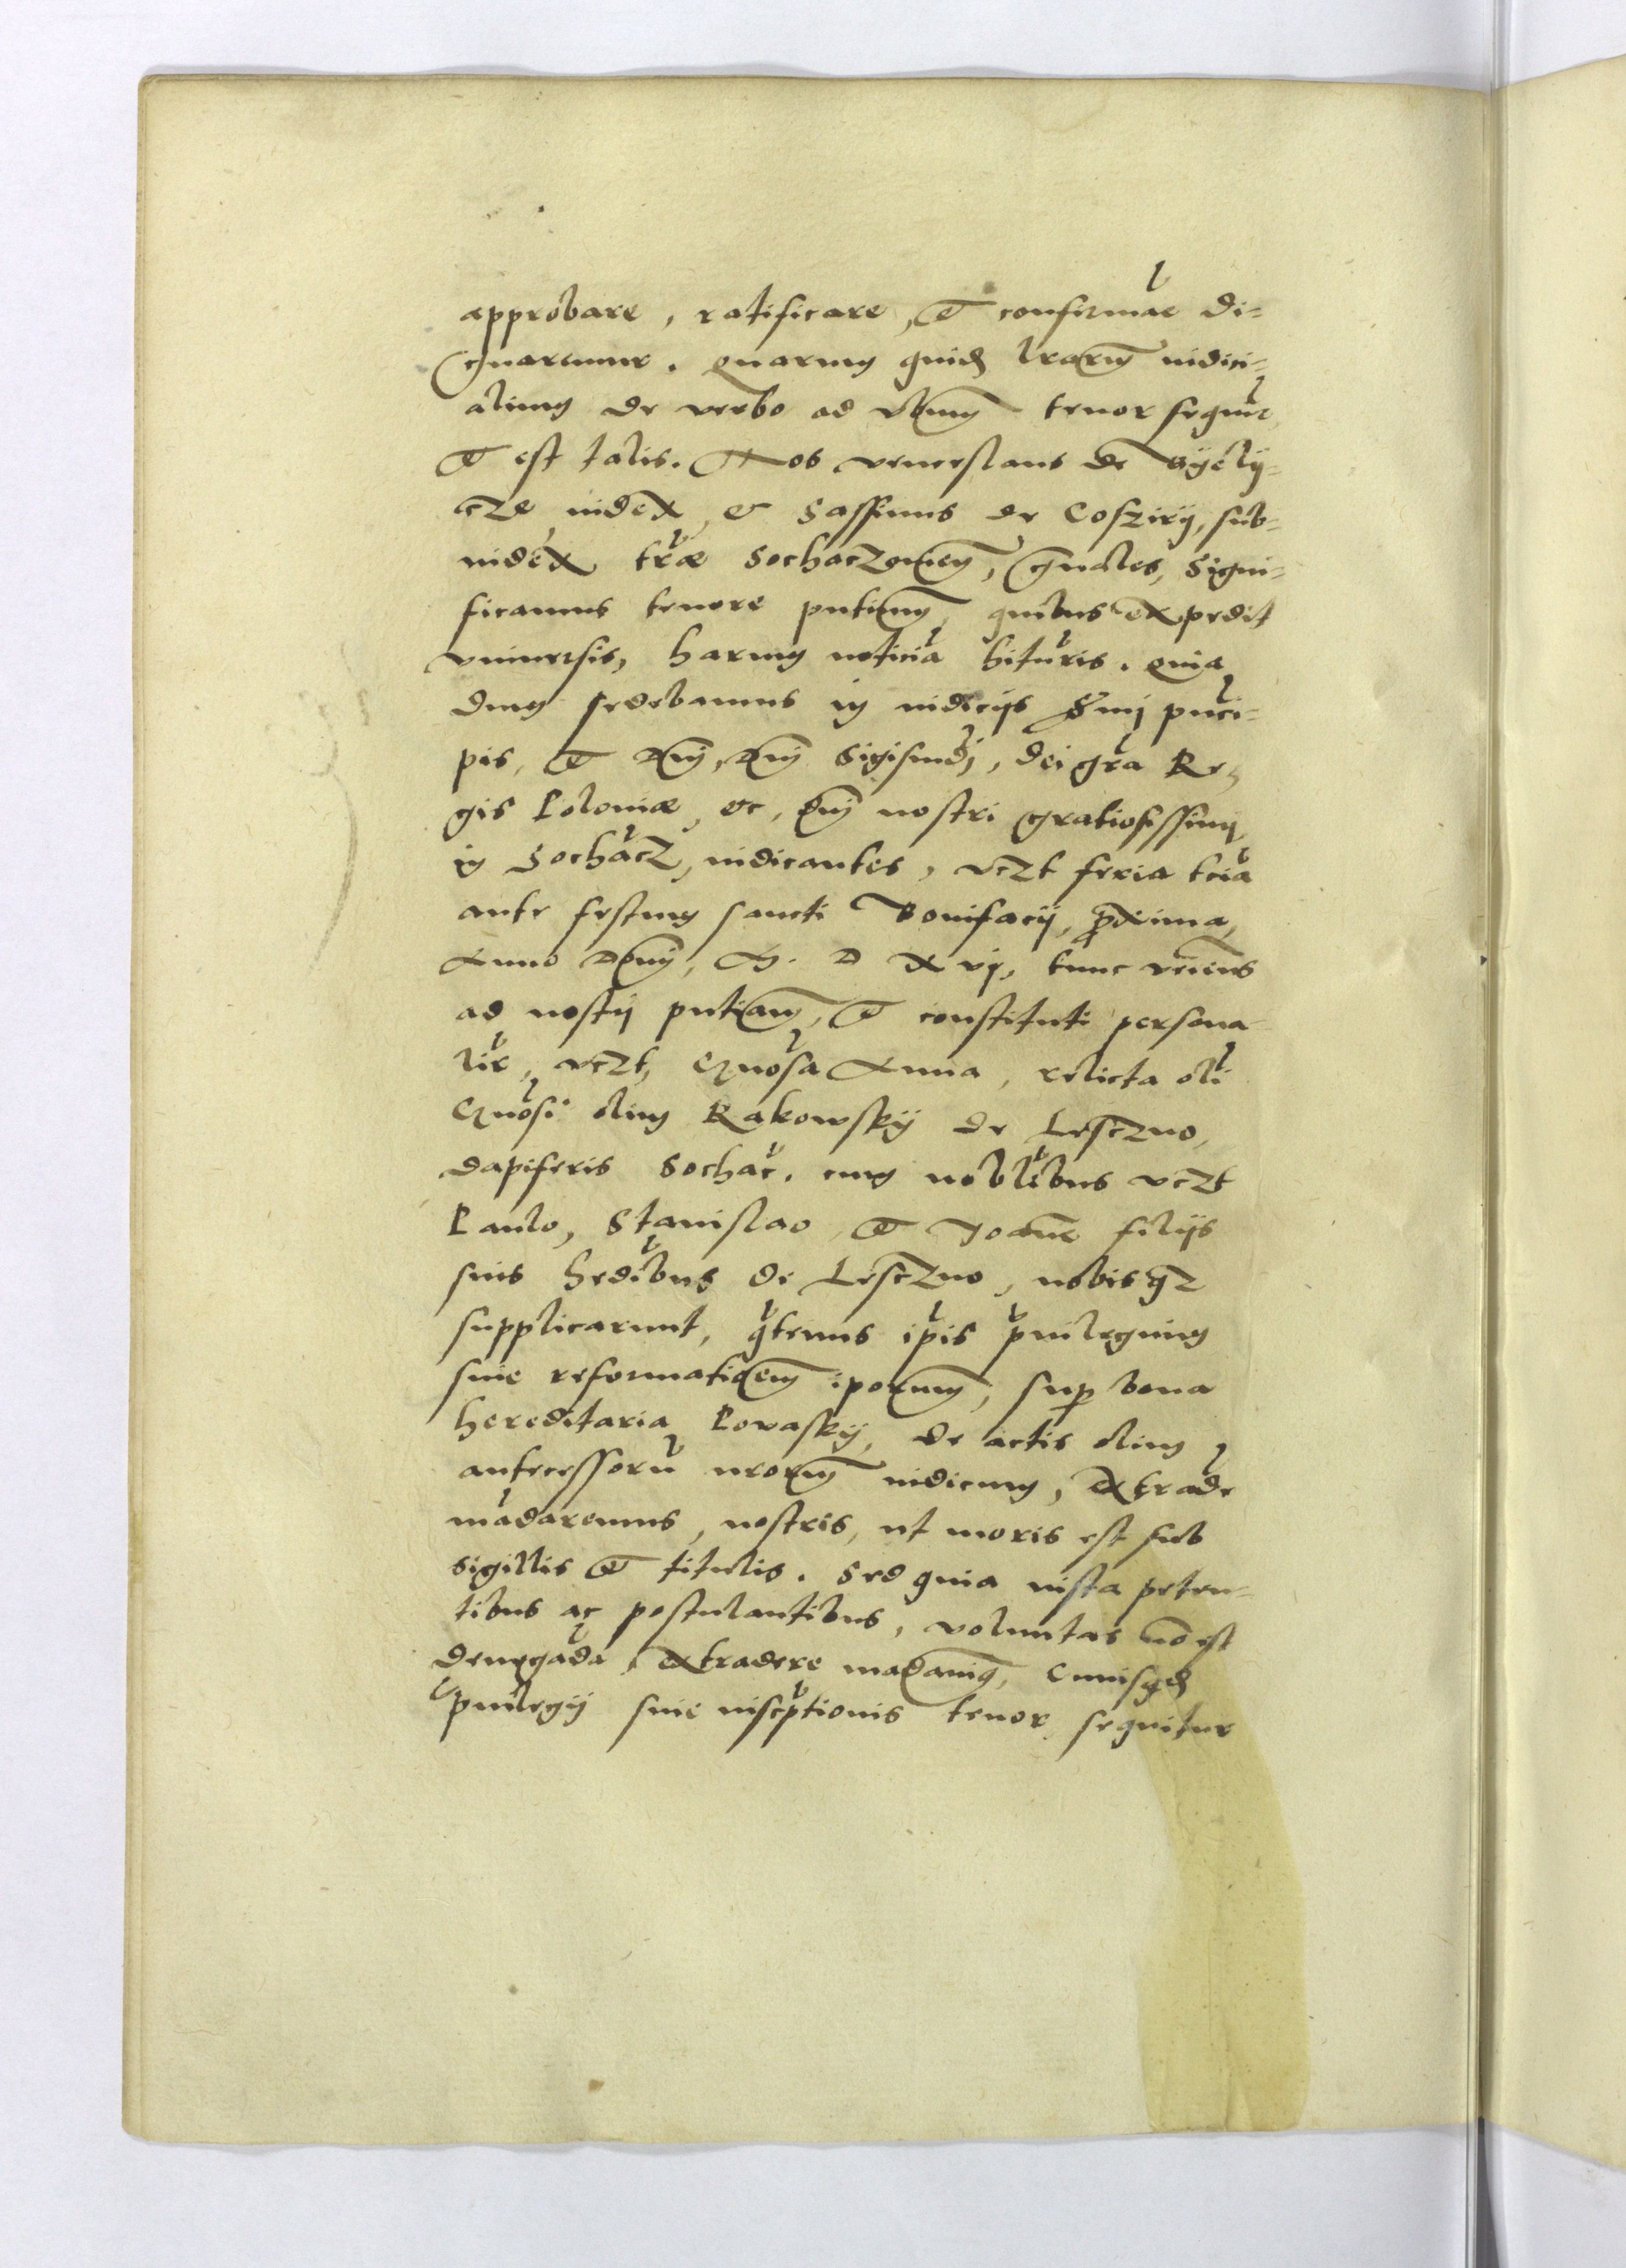 approbare, ratificare, et confirmãre di-
gnaremur. quarum quid lrarum iudici-
alium de verbo ad vbum tenor sequir
et est talis. Nos Venceslaus de
iudex, et Sassinus de Cosziry, sub-
iudex træ Sochaczoviens, gnales, Signi-
ficamus tenore pntium quibus expedit
vniuersis, harum noticia hituris. quia
dum sedebamus in iudicijs Smi pnci-
pis, et Dni, Dni Sigismdi, dei gra Re-
gis Poloniæ, etc, dni nostri gratiosissimi,
in Sochacz, iudicantes, vczt feria tcia
ante festum sancti Bonifacij, proxima,
Anno Dni, M. D XVI, tunc veniens
ad nostri pntiam, et constituti persona-
lir, vczt, Gnosa Anna, relicta oli
Gnosi olim Rakowsky de Lesczno,
dapiferis Sochac. cum noblibus vczt
Paulo, Stanislao et Joanne filijs
suis hedibus de Lesczno, nobis qz
supplicarunt, qtenus ipis priuilegium
siue reformationem iporum, sup bona
hereditaria, de actis olim
antecessoru nrorum iudicum, extrade
mãdaremus, nostris, ut moris est sub
sigillis et titulis. Sed quia iusta peten-
tibus ac postulantibus, voluntas nõ est
denegãda, extradere mãdauimus, Cuiusqd
priuilegij siue inscptionis tenor sequitur